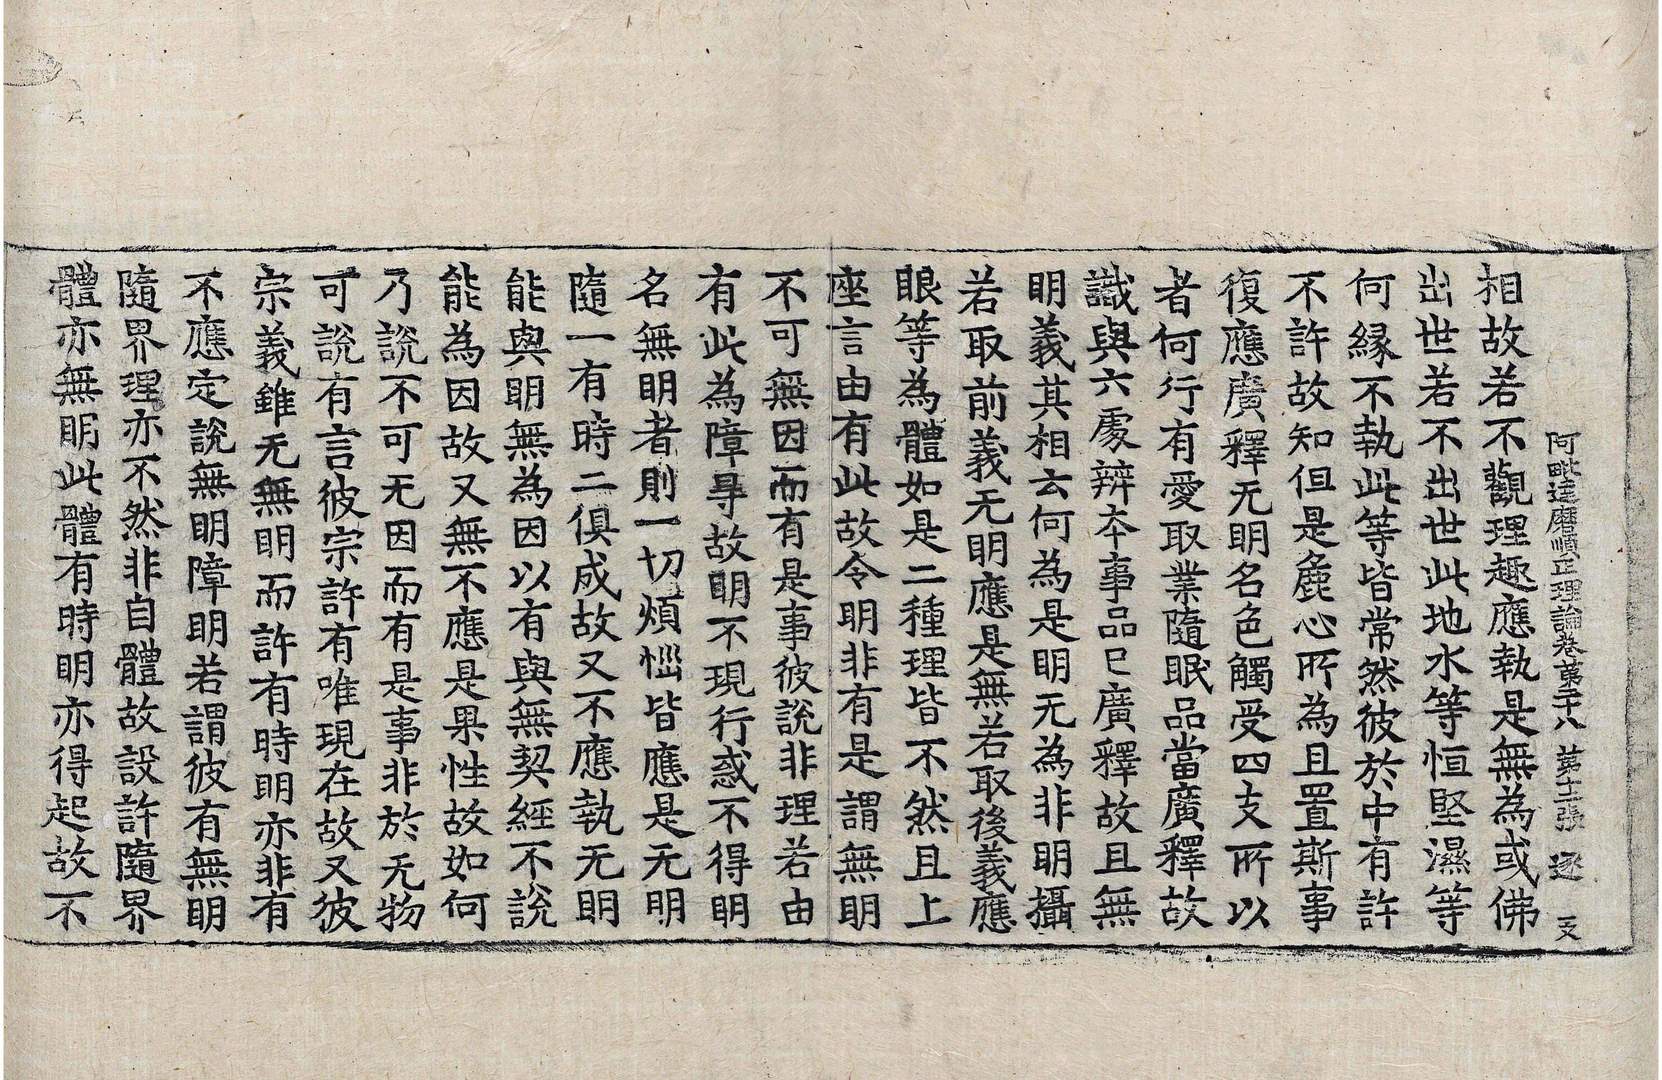 阿毗達磨順正理論卷第二十八 第十二張 逐 支
相故若不觀理趣應執是無為或佛
出世若不出世此地水等恒堅濕等
何縁不執此等皆常然彼於中有許
不許故知但是麁心所為且置斯事
復應廣釋无明名色觸受四支所以
者何行有愛取業隨眠品當廣釋故
識與六處辨本事品已廣釋故且無
明義其相云何為是明无為非明攝
若取前義无明應是無若取後義應
眼等為體如是二種理皆不然且上
座言由有此故令明非有是謂無明
不可無因而有是事彼說非理若由
有此為障㝵故明不現行惑不得明
名無明者則一切煩惱皆應是无明
隨一有時二俱成故又不應執无明
能與明無為因以有與無契經不說
能為因故又無不應是果性故如何
乃說不可无因而有是事非於无物
可說有言彼宗許有唯現在故又彼
宗義雖无無明而許有時明亦非有
不應定說無明障明若謂彼有無明
隨界理亦不然非自體故設許隨界
體亦無明此體有時明亦得起故不